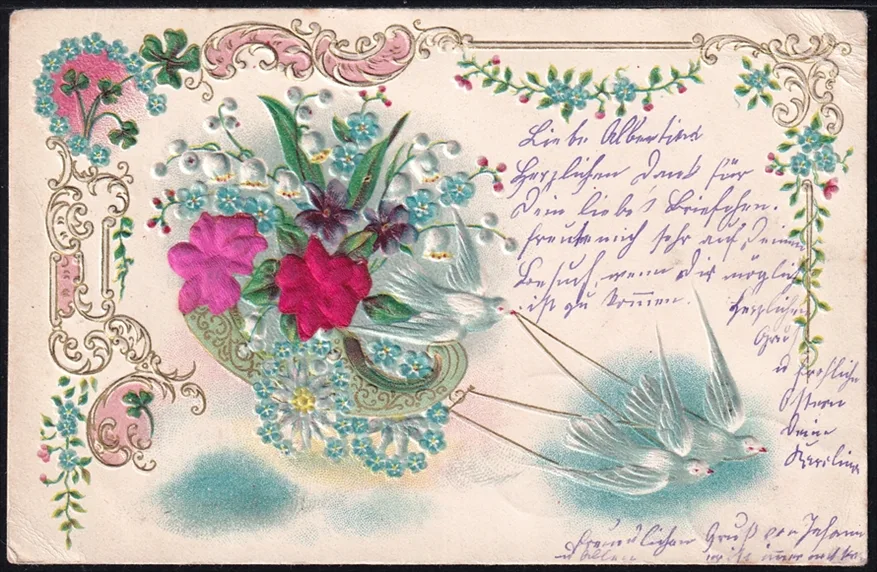 Liebe Albertine
Herzlichen Dank für
Dein liebes Briefchen.
freute mich sehr auf Deinen
Besuch, wenn Dir möglich
ist zu kommen.
Herzlichen
Gruß
u fröhliche
Ostern
Deine
Karoline
freundlichen Gruß von Johann